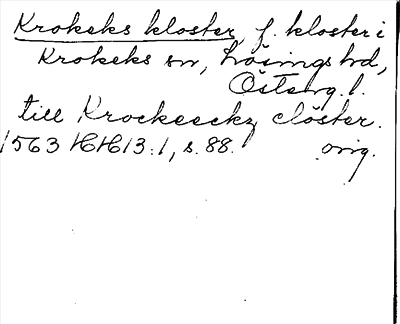 Krokeks kloster, f. kloster i
Krokeks sn, Lösings hd,
Österg. l.
till Krockeeckz clöster.
1563 HH 13:1, s. 88. orig.